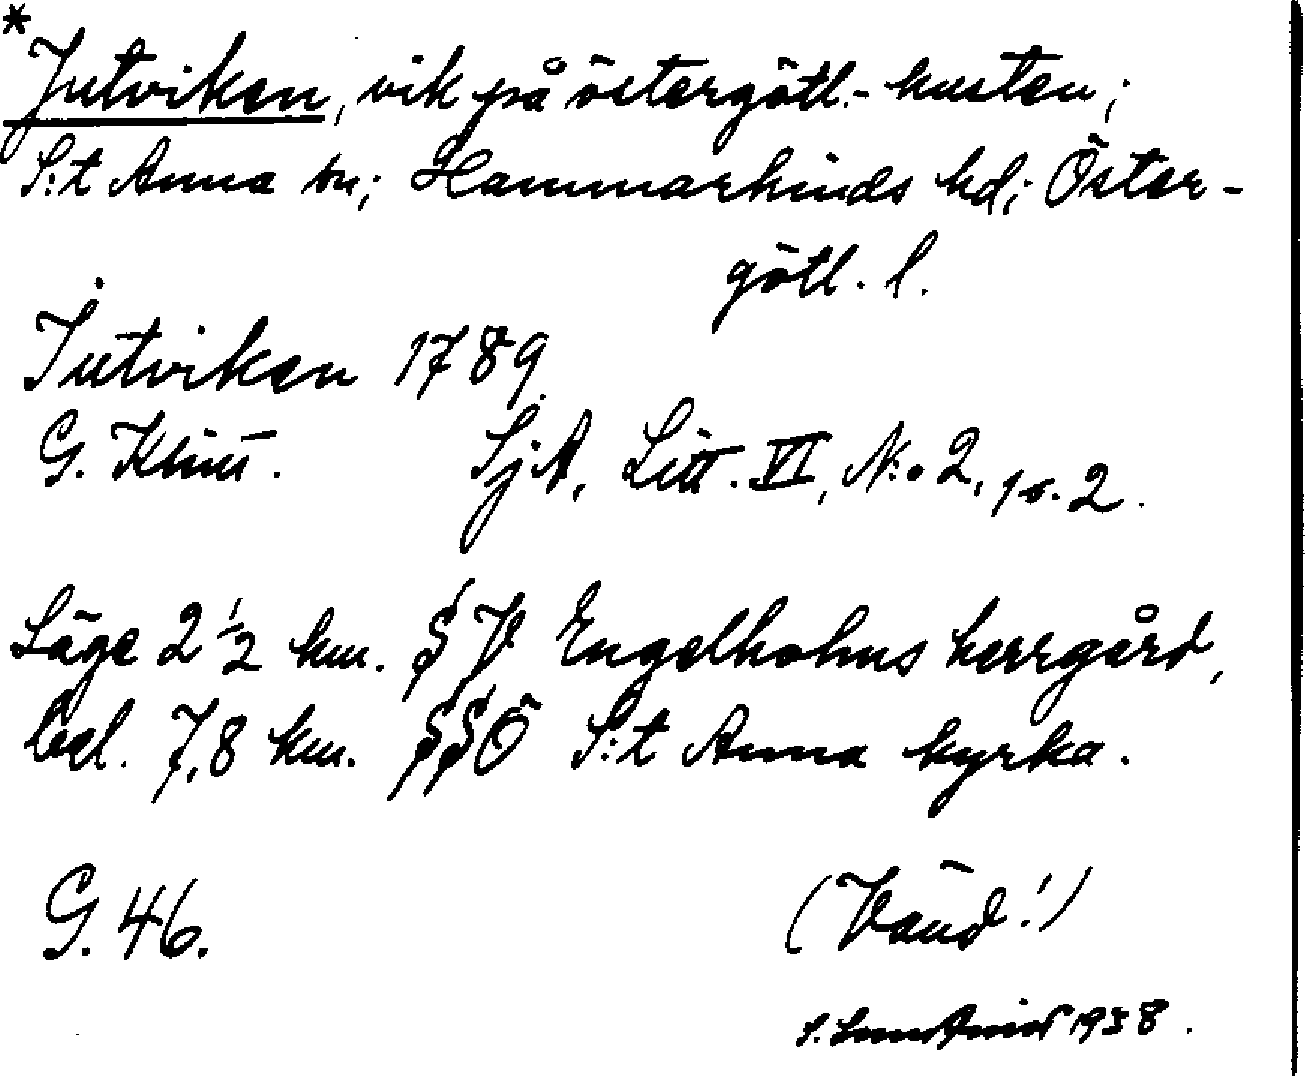 *Jutviken, vik på östergötl.-kusten;
S:t Anna sn; Hammarkinds hd; Öster-
götl. l.
Jutviken 1789.
G. Klint. SjA, Litt. VI, N:o 2, 1 o. 2.
Läge 2 1/2 km. S V Engelholms herrgård,
bel. 7,8 km. SSÖ S:t Anna kyrka.
G. 46.
(Vänd!)
S. 1938.